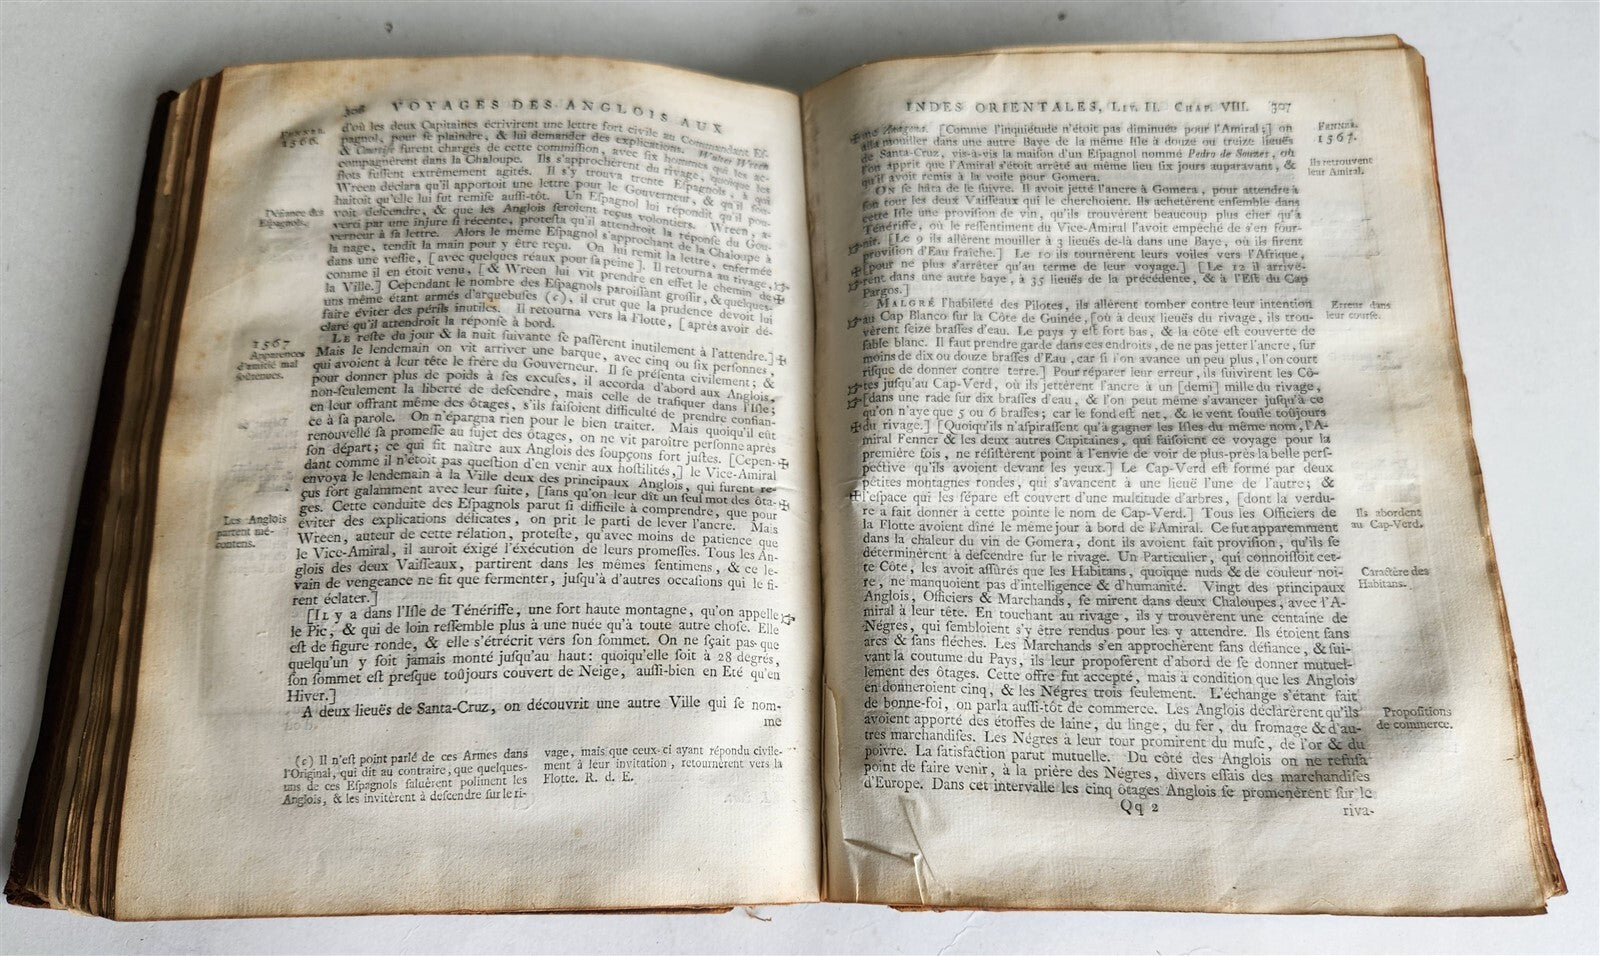 306 VOYAGES DES ANGLOIS AUX
FENNER.
1566.
d'où les deux Capitaines écrivirent une lettre fort civile au Commandant Es-
pagnol, pour se plaindre, & lui demander des explications. Walter Wreen
& Courtise furent chargés de cette commission, avec six hommes qui les ac-
compagnérent dans la Chaloupe. Ils s'approchérent du rivage, quoique les
flots fussent extrêmement agités. Il s'y trouva trente Espagnols, à qui
Wreen déclara qu'il apportoit une lettre pour le Gouverneur, & qu'il sou-
haitoit qu'elle lui fut remise aussi-tôt. Un Espagnol lui répondit qu'il pou-
Défiance des
Espagnols.
voit descendre, & que les Anglois seroient reçus volontiers. Wreen, a-
verti par une injure si récente, protesta qu'il attendroit la réponse du Gou-
verneur à sa lettre. Alors le même Espagnol s'approchant de la Chaloupe à
la nage, tendit la main pour y être reçu. On lui remit la lettre, enfermée
dans une vessie, [avec quelques réaux pour sa peine]. Il retourna au rivage,
comme il en étoit venu, [& Wreen lui vit prendre en effet le chemin de
la Ville.] Cependant le nombre des Espagnols paroissant grossir, & quelques-
uns même étant armés d'arquebuses (c), il crut que la prudence devoit lui
faire éviter des périls inutiles. Il retourna vers la Flotte, [après avoir dé-
claré qu'il attendroit la réponse à bord.
1567
Apparences
d'amitié mal
soûtenues.
LE reste du jour & la nuit suivante se passèrent inutilement à l'attendre.]
Mais le lendemain on vit arriver une barque, avec cinq ou six personnes,
qui avoient à leur tête le frère du Gouverneur. Il se présenta civilement; &
pour donner plus de poids à ses excuses, il accorda d'abord aux Anglois,
non-seulement la liberté de descendre, mais celle de trafiquer dans l'Isle;
en leur offrant même des ôtages, s'ils faisoient difficulté de prendre confian-
ce à sa parole. On n'épargna rien pour le bien traiter. Mais quoiqu'il eût
renouvellé sa promesse au sujet des ôtages, on ne vit paroître personne après
son départ; ce qui fit naître aux Anglois des soupçons fort justes. [Cepen-
dant comme il n'étoit pas question d'en venir aux hostilités,] le Vice-Amiral
envoya le lendemain à la Ville deux des principaux Anglois, qui furent re-
çus fort galamment avec leur suite, [sans qu'on leur dît un seul mot des ôta-
ges. Cette conduite des Espagnols parut si difficile à comprendre, que pour
Les Anglois
partent mé-
contens.
éviter des explications délicates, on prit le parti de lever l'ancre. Mais
Wreen, auteur de cette relation, proteste, qu'avec moins de patience que
le Vice-Amiral, il auroit éxigé l'éxécution de leurs promesses. Tous les An-
glois des deux Vaisseaux, partirent dans les mêmes sentimens, & ce le-
vain de vengeance ne fit que fermenter, jusqu'à d'autres occasions qui le fi-
rent éclater.]
[IL y a dans l'Isle de Ténériffe, une fort haute montagne, qu'on appelle
le Pic, & qui de loin ressemble plus à une nuée qu'à toute autre chose. Elle
est de figure ronde, & elle s'étrécit vers son sommet. On ne sçait pas que
quelqu'un y soit jamais monté jusqu'au haut: quoiqu'elle soit à 28 degrés,
son sommet est presque toûjours couvert de Neige, aussi-bien en Eté qu'en
Hiver.]
A deux lieuës de Santa-Cruz, on découvrit une autre Ville qui se nom-
me
(c) Il n'est point parlé de ces Armes dans
l'Original, qui dit au contraire, que quelques-
uns de ces Espagnols saluèrent poliment les
Anglois, & les invitèrent à descendre sur le ri-
vage, mais que ceux-ci ayant répondu civile-
ment à leur invitation, retournèrent vers la
Flotte. R. d. E.
INDES ORIENTALES, LIV. II. CHAP. VIII. 307
FENNER.
1567.
me Anagona. [Comme l'inquiétude n'étoit pas diminuée pour l'Amiral;] on
alla mouiller dans une autre Baye de la même Isle à douze ou treize lieuës
de Santa-Cruz, vis-à-vis la maison d'un Espagnol nommé Pedro de Souzes, où
l'on apprit que l'Amiral s'étoit arrêté au même lieu six jours auparavant, &
qu'il avoit remis à la voile pour Gomera.
Ils retrouvent
leur Amiral.
ON se hâta de le suivre. Il avoit jetté l'ancre à Gomera, pour attendre à
son tour les deux Vaisseaux qui le cherchoient. Ils achetérent ensemble dans
cette Isle une provision de vin, qu'ils trouvèrent beaucoup plus cher qu'à
Ténériffe, où le ressentiment du Vice-Amiral l'avoit empeché de s'en four-
nir. [Le 9 ils allérent mouiller à 3 lieuës de-là dans une Baye, où ils firent
provision d'Eau fraîche.] Le 10 ils tournérent leurs voiles vers l'Afrique,
[pour ne plus s'arrêter qu'au terme de leur voyage.] [Le 12 il arrivé-
rent dans une autre baye, à 35 lieuës de la précédente, & à l'Est du Cap
Pargos.]
MALGRÉ l'habileté des Pilotes, ils allérent tomber contre leur intention
au Cap Blanco sur la Côte de Guinée, [où à deux lieuës du rivage, ils trou-
vèrent seize brasses d'eau. Le pays y est fort bas, & la côte est couverte de
sable blanc. Il faut prendre garde dans ces endroits, de ne pas jetter l'ancre, sur
moins de dix ou douze brasses d'Eau, car si l'on avance un peu plus, l'on court
risque de donner contre terre.] Pour réparer leur erreur, ils suivirent les Cô-
Erreur dans
leur course.
tes jusqu'au Cap-Verd, où ils jettérent l'ancre à un [demi] mille du rivage,
[dans une rade sur dix brasses d'eau, & l'on peut même s'avancer jusqu'à ce
qu'on n'aye que 5 ou 6 brasses; car le fond est net, & le vent souffe toûjours
du rivage.] [Quoiqu'ils n'aspirassent qu'à gagner les Isles du même nom, l'A-
miral Fenner & les deux autres Capitaines, qui faisoient ce voyage pour la
première fois, ne résistérent point à l'envie de voir de plus-près la belle pers-
pective qu'ils avoient devant les yeux.] Le Cap-Verd est formé par deux
petites montagnes rondes, qui s'avancent à une lieuë l'une de l'autre; &
l'espace qui les sépare est couvert d'une multitude d'arbres, [dont la verdu-
re a fait donner à cette pointe le nom de Cap-Verd.] Tous les Officiers de
Ils abordent
au Cap-Verd.
la Flotte avoient dîné le même jour à bord de l'Amiral. Ce fut apparemment
dans la chaleur du vin de Gomera, dont ils avoient fait provision, qu'ils se
déterminérent à descendre sur le rivage. Un Particulier, qui connoissoit cet-
te Côte, les avoit assurés que les Habitans, quoique nuds & de couleur noi-
Caractère des
Habitans.
re, ne manquoient pas d'intelligence & d'humanité. Vingt des principaux
Anglois, Officiers & Marchands, se mirent dans deux Chaloupes, avec l'A-
miral à leur tête. En touchant au rivage, ils y trouvèrent une centaine de
Négres, qui sembloient s'y être rendus pour les y attendre. Ils étoient sans
arcs & sans flèches. Les Marchands s'en approchérent sans défiance, & sui-
vant la coutume du Pays, ils leur proposèrent d'abord de se donner mutuel-
lement des ôtages. Cette offre fut acceptée, mais à condition que les Anglois
en donneroient cinq, & les Négres trois seulement. L'échange s'étant fait
de bonne-foi, on parla aussi-tôt de commerce. Les Anglois déclarèrent qu'ils
Propositions
de commerce.
avoient apporté des étoffes de laine, du linge, du fer, du fromage & d'au-
tres marchandises. Les Négres à leur tour promirent du musc, de l'or & du
poivre. La satisfaction parut mutuelle. Du côté des Anglois on ne refusa
point de faire venir, à la prière des Négres, divers essais des marchandises
d'Europe. Dans cet intervalle les cinq ôtages Anglois se promenérent sur le
Qq 2
riva-